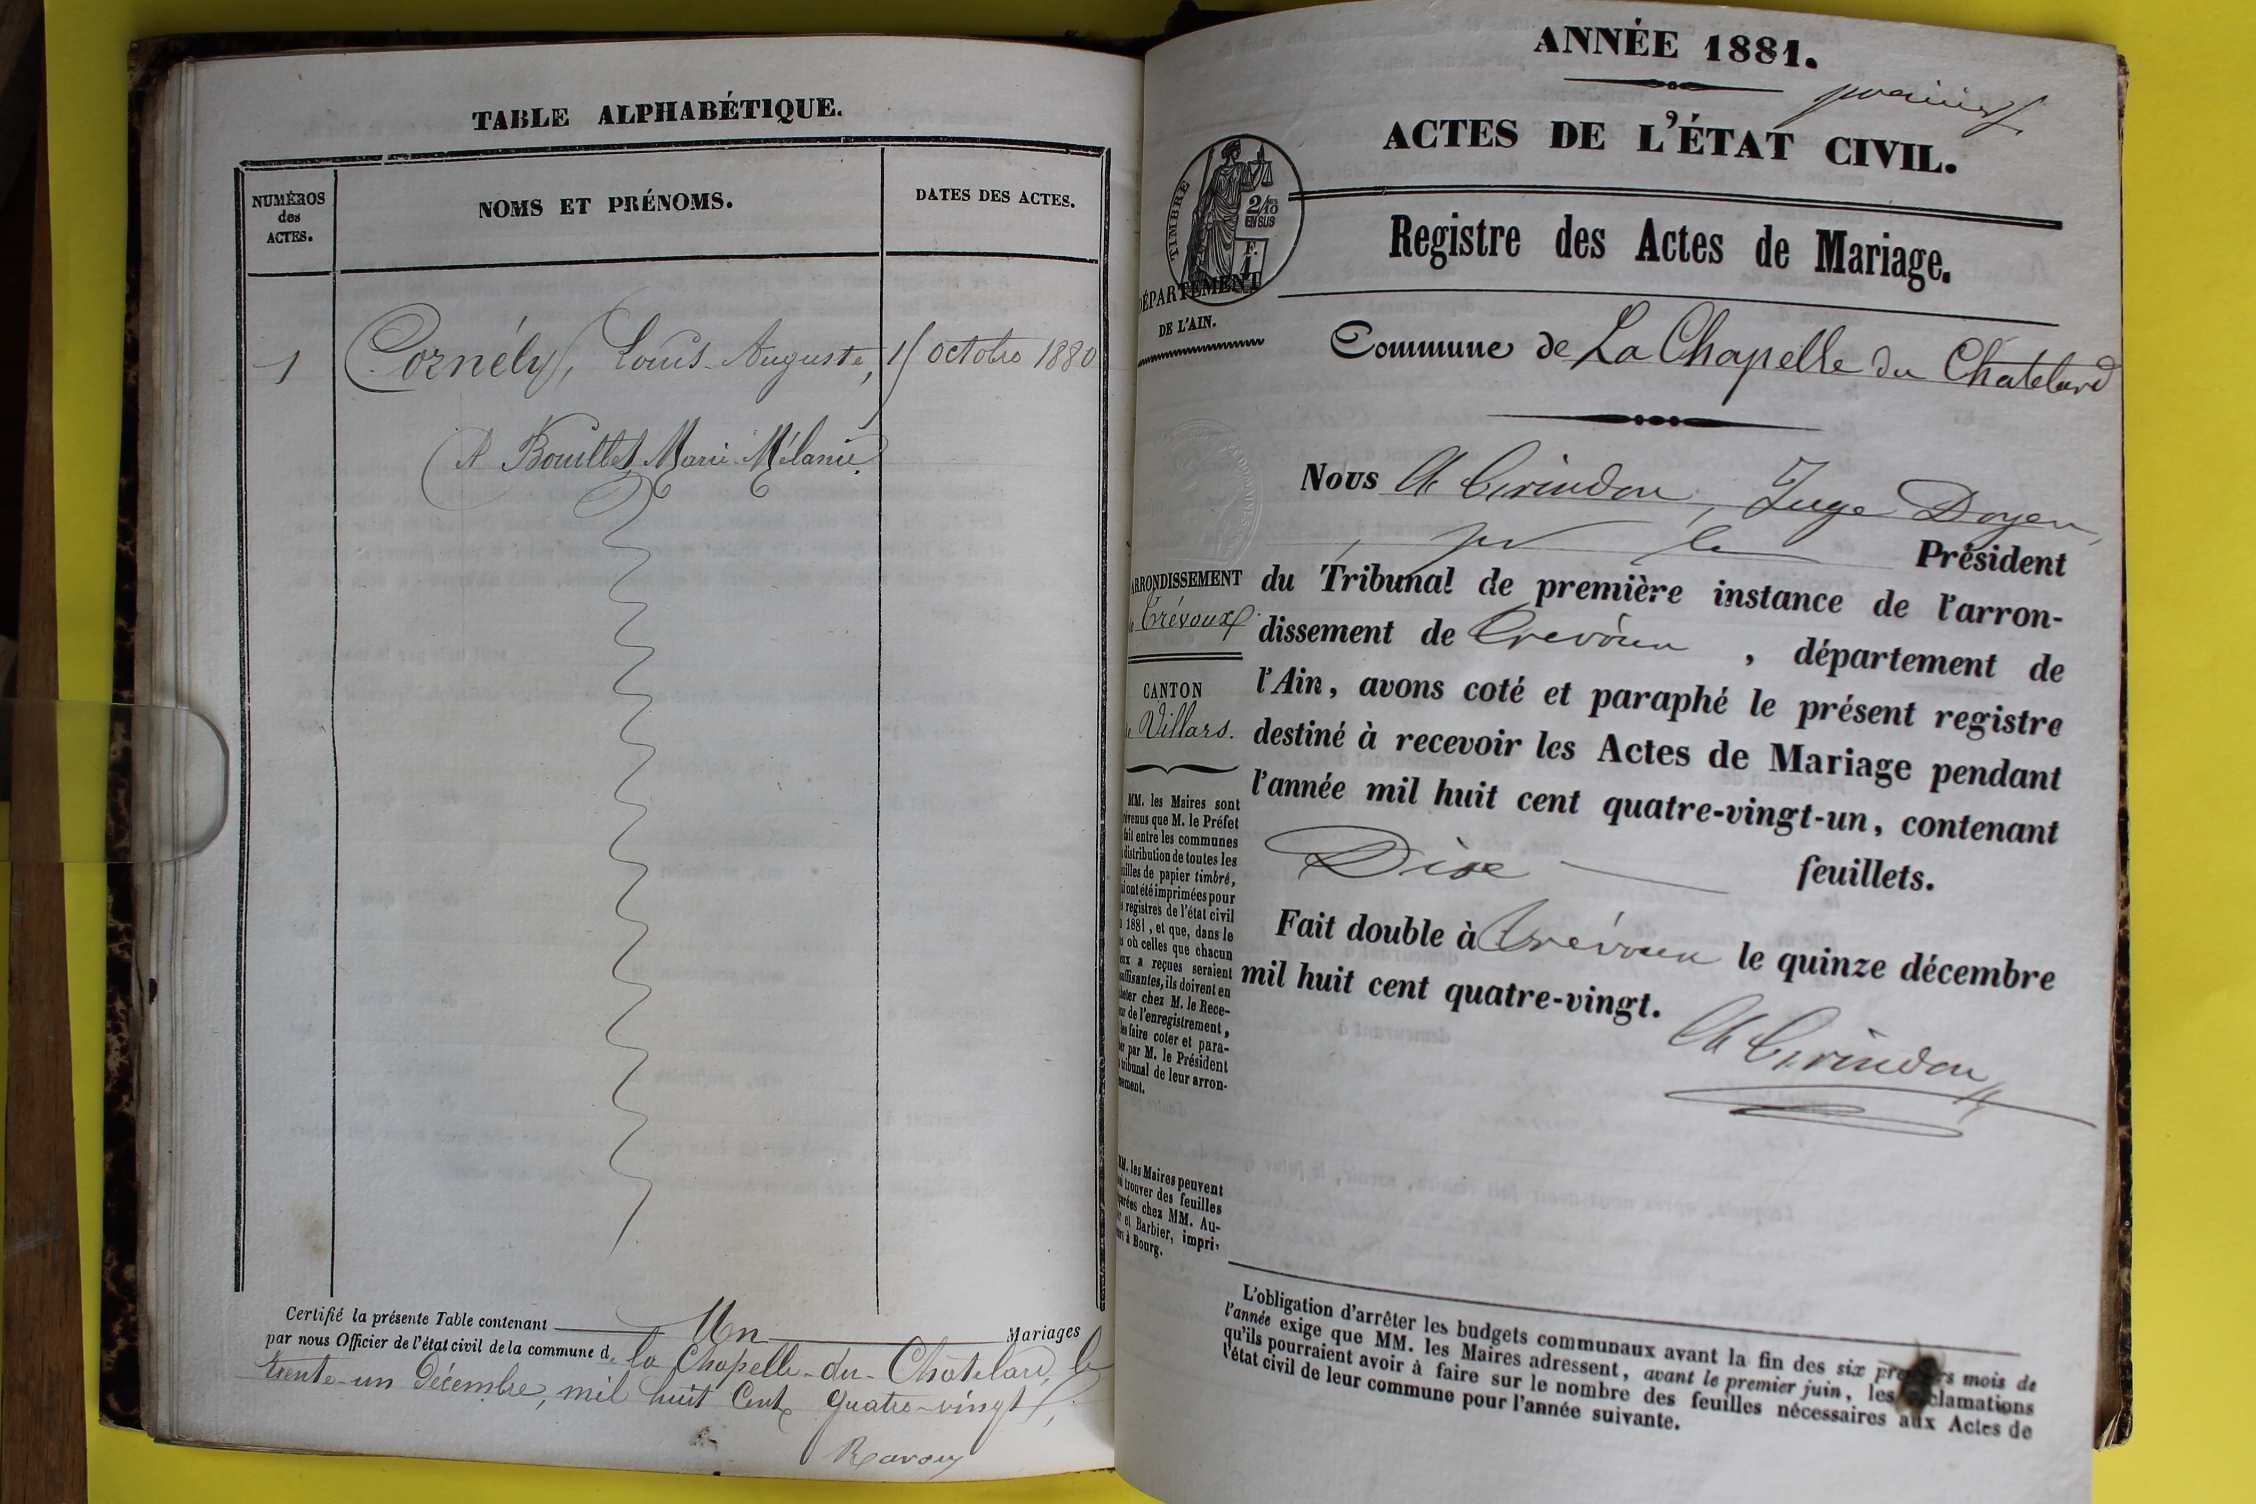 TABLE ALPHABÉTIQUE.
NUMÉROS
des
ACTES.
NOMS ET PRÉNOMS.
DATES DES ACTES.
1 Cornély, Louis-Auguste, octobre 1880
A Bouillet Marie Mélanie.
Certifié la présente Table contenant Un Mariages
par nous Officier de l'état civil de la commune d. la Chapelle-du-Châtelard, le
trente-un Décembre, mil huit Cent quatre-vingt,
ANNÉE 1881.
ACTES DE L'ÉTAT CIVIL.
Registre des Actes de Mariage.
TIMBRE
2/10
EN SUS
F.
1
DÉPARTEMENT
DE L'AIN.
Commune de La Chapelle du Chatelard
Nous Juge Doyen,
pr le Président
du Tribunal de première instance de l'arron-
dissement de Trevoux , département de
l'Ain, avons coté et paraphé le présent registre
destiné à recevoir les Actes de Mariage pendant
l'année mil huit cent quatre-vingt-un, contenant
Dix feuillets.
Fait double à Trévoux le quinze décembre
mil huit cent quatre-vingt.
ARRONDISSEMENT
Trévoux
CANTON
Villars.
MM. les Maires sont
que M. le Préfet
fait entre les communes
distribution de toutes les
de papier timbré,
ont été imprimées pour
registres de l'état civil
1881, et que, dans le
où celles que chacun
a reçues seraient
ils doivent en
chez M. le Rece-
de l'enregistrement,
les faire coter et para-
par M. le Président
tribunal de leur arron-
MM. les Maires peuvent
trouver des feuilles
chez MM. Au-
et Barbier, impri-
à Bourg.
L'obligation d'arrêter les budgets communaux avant la fin des six mois de
l'année exige que MM. les Maires adressent, avant le premier juin, les
qu'ils pourraient avoir à faire sur le nombre des feuilles nécessaires aux Actes de
l'état civil de leur commune pour l'année suivante.